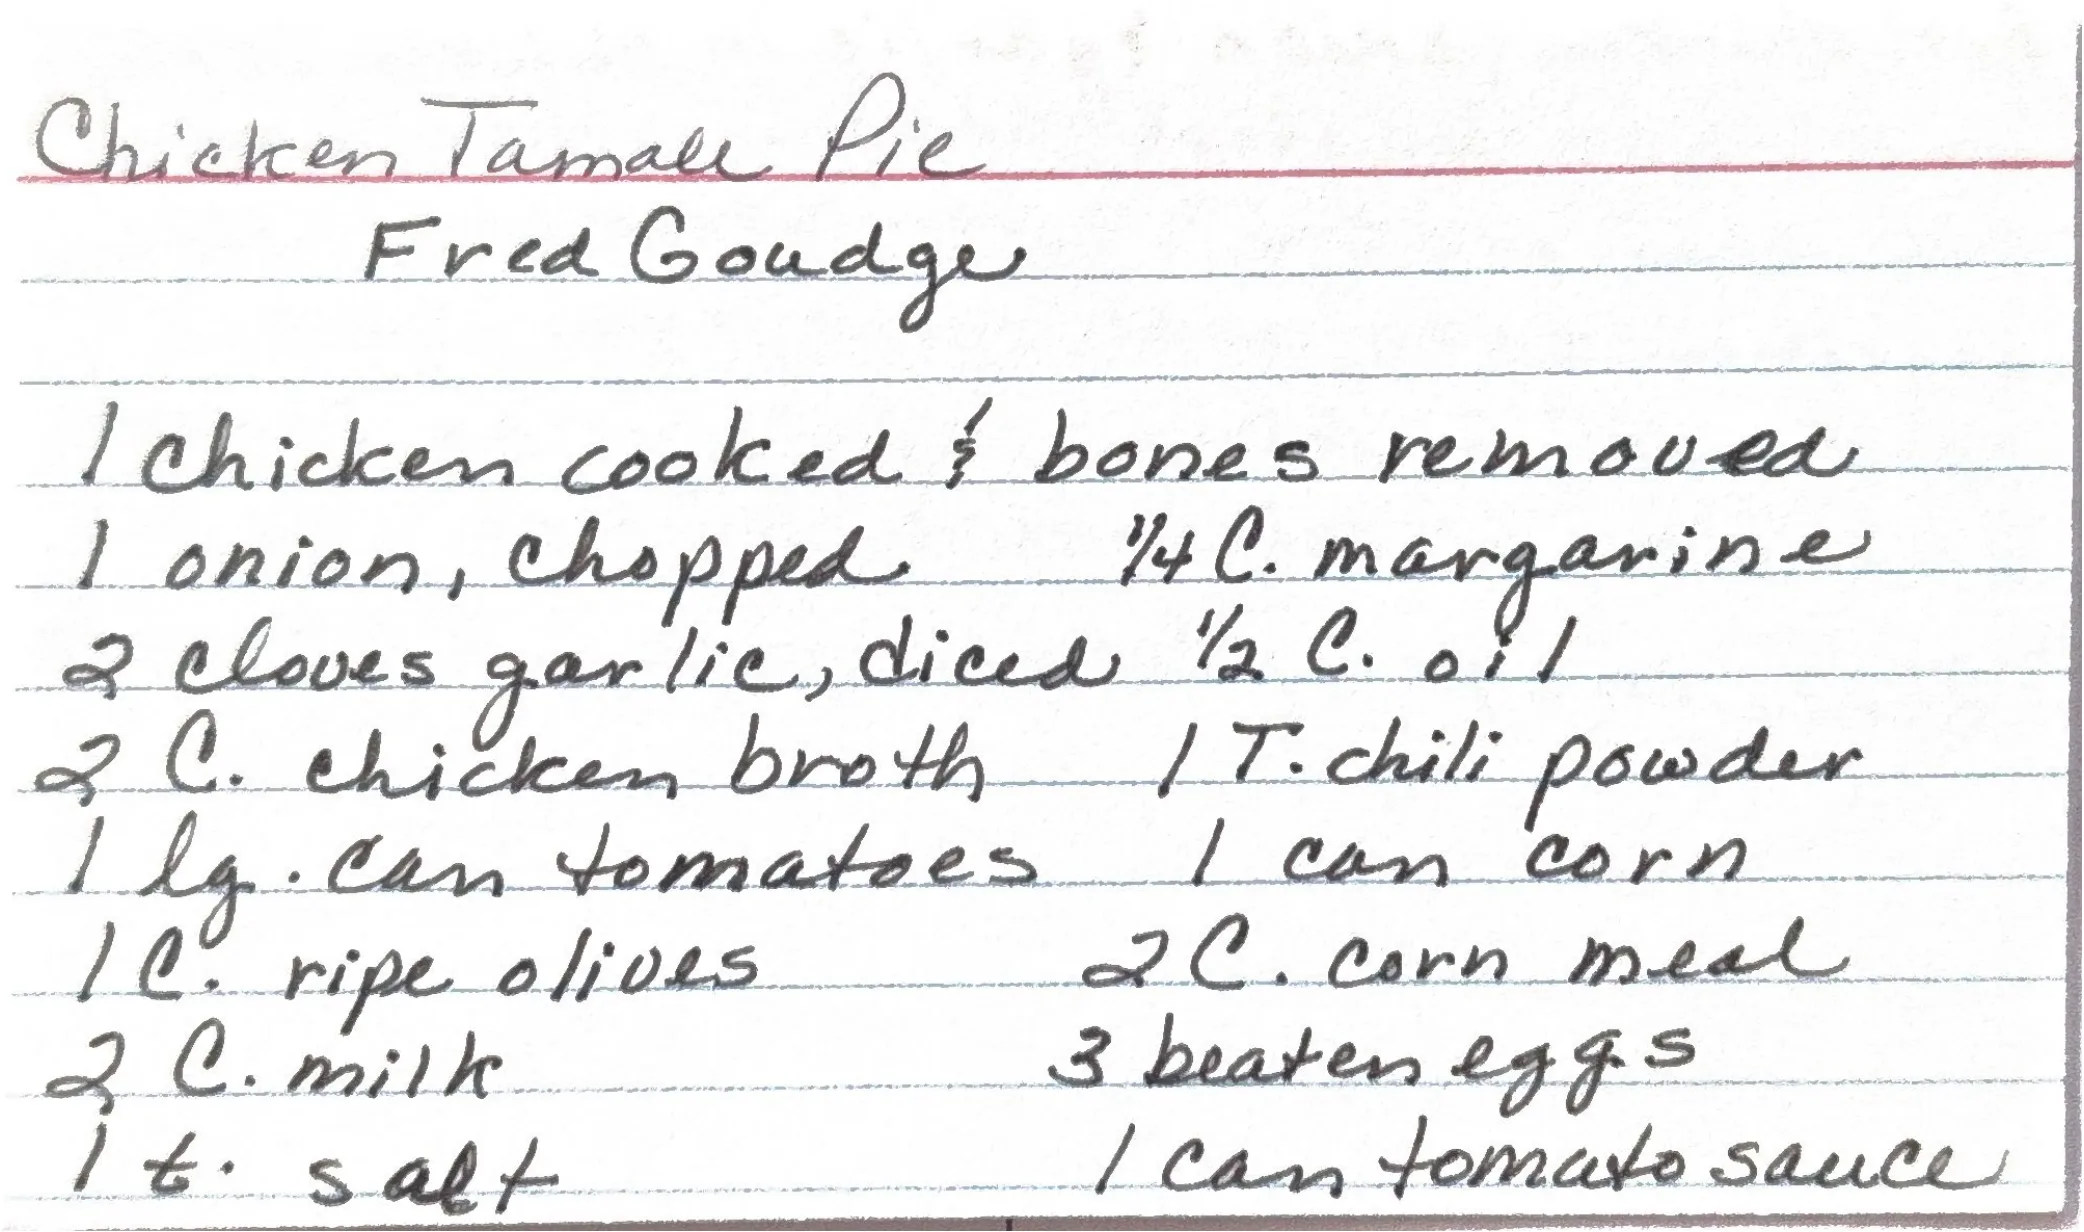 Chicken Tamale Pie
Fred Goudge
1 chicken cooked & bones removed
1 onion, chopped 1/4 C. margarine
2 cloves garlic, diced 1/2 C. oil
2 C. chicken broth 1 T. chili powder
1 lg. can tomatoes 1 can corn
1 C. ripe olives 2 C. corn meal
2 C. milk 3 beaten eggs
1 t. salt 1 can tomato sauce